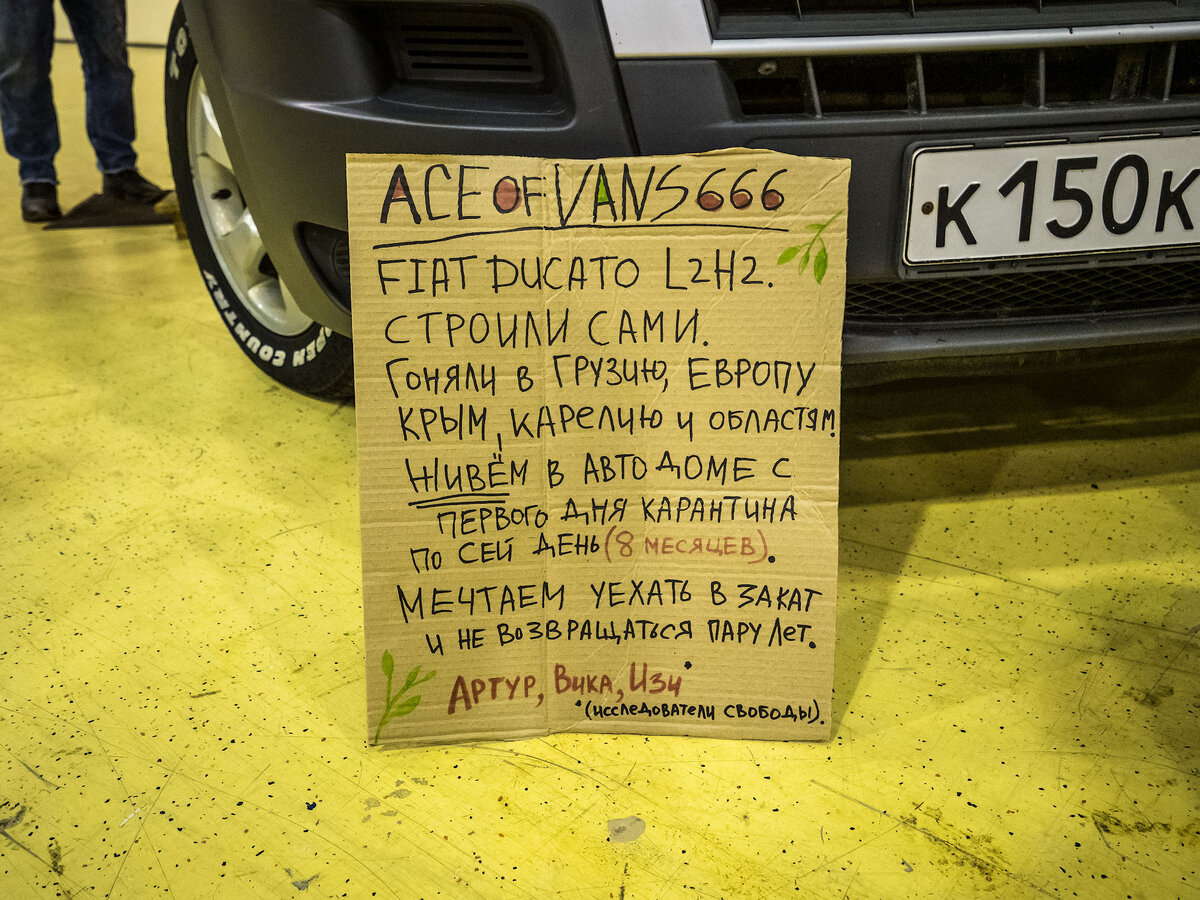 ACE OF VANS 666
FIAT DUCATO L2H2.
СТРОИЛИ САМИ.
Гоняли в Грузию, Европу
Крым, Карелию и областям.
Живём в автодоме с
первого дня карантина
по сей день (8 месяцев).
Мечтаем уехать в закат
и не возвращаться пару лет.
Артур, Вика, Изи*
*(исследователи свободы).
К150К
OPEN COUNTRY